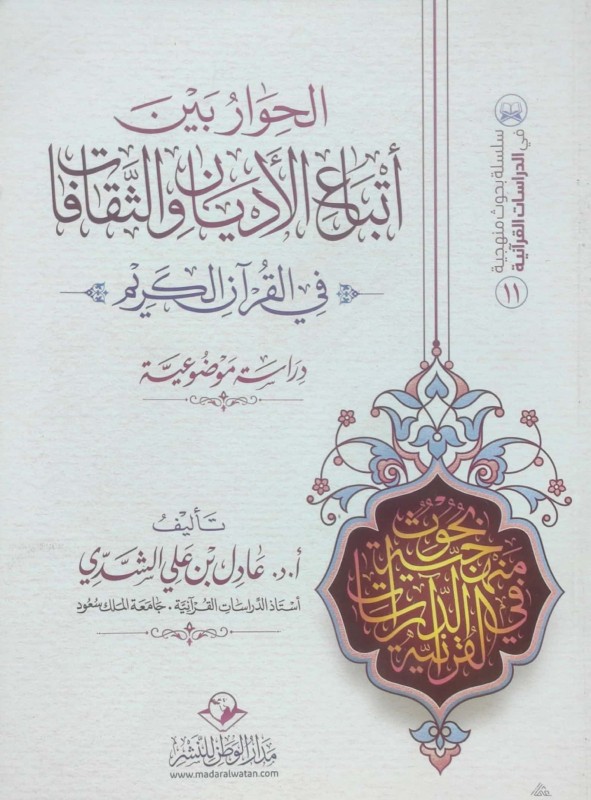 الحوار بين
أتباع الأديان والثقافات
في القرآن الكريم
دراسة موضوعية
تأليف
أ.د. عادل بن علي الشدي
أستاذ الدراسات القرآنية - جامعة الملك سعود
مدار الوطن للنشر
www.madaralwatan.com
سلسلة بحوث منهجية
في الدراسات القرآنية
١١
بحوث
منهجية
في الدراسات
القرآنية